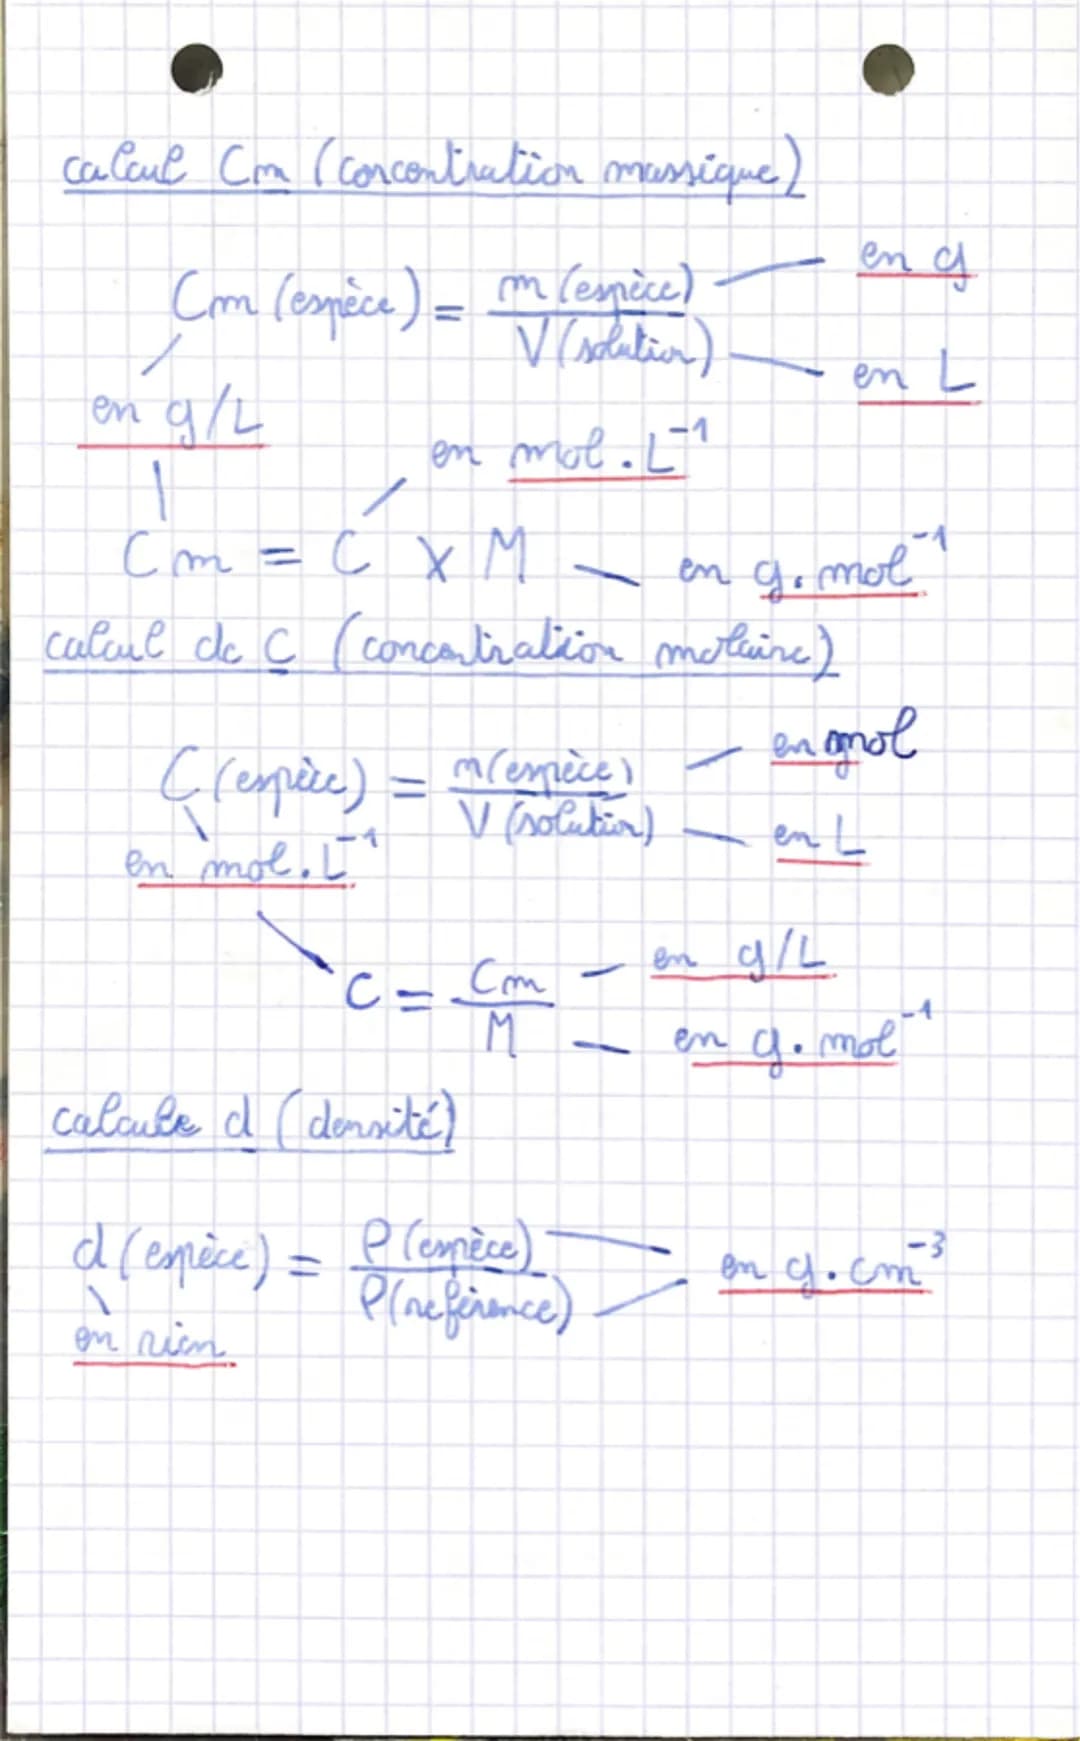 calcul Cm (concentration massique)
en g
Cm (espèce) = m (espèce) / V (solution)
en L
en g/L
en mol . L⁻¹
Cm = C x M — en g. mol⁻¹
calcul de C (concentration molaire)
en mol
C (espèce) = n (espèce) / V (solution)
en L
en mol. L⁻¹
en g/L
C = Cm / M
en g. mol⁻¹
calcule d (densité)
d (espèce) = ρ (espèce) / ρ (reférence)
en g. cm⁻³
en rien